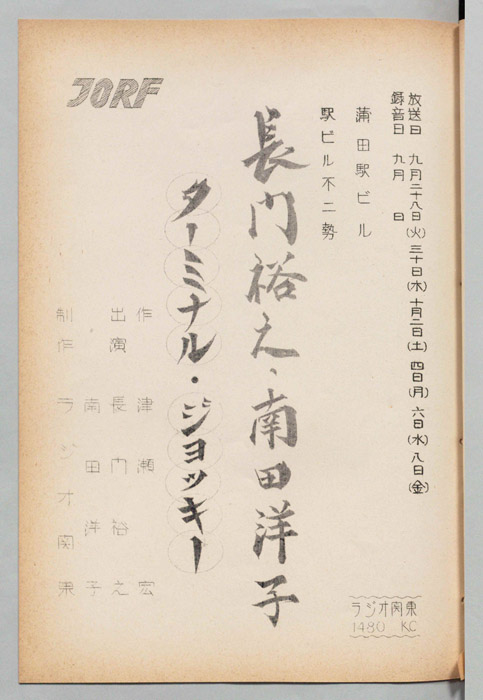 JORF
放送日 九月二十八日(火) 三十日(木) 十月二日(土) 四日(月) 六日(水) 八日(金)
録音日 九月 日
蒲田駅ビル
駅ビル不二勢
長門裕之・南田洋子
ターミナル・ジョッキー
作 津瀬宏
出演 長門裕之
南田洋子
制作 ラジオ関東
ラジオ関東
1480 KC